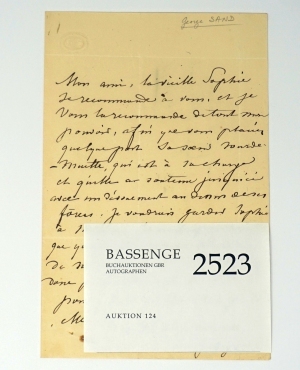 George SAND
Mon ami, la vieille Sophie
se recommande à vous, et je
vous la recommande de tout mon
pouvoir, afin que vous placiez
quelque part sa sœur sourde-
muette, qui est à sa charge
et qu'elle a soutenue jusqu'ici
avec un dévouement au dessus de ses
forces. Je voudrais garder Sophie
BASSENGE
BUCHAUKTIONEN GBR
AUTOGRAPHEN
2523
AUKTION 124